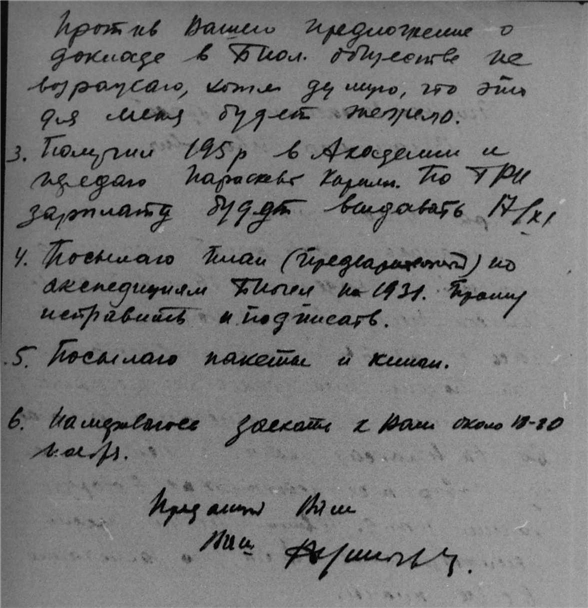 Против Вашего предложение о
докладе в Биол. обществе не
возражаю, хотя думаю, что это
для меня будет тяжело.
3. Получил 195р в Академии и
передаю Параскеве Кирилл. По ГРИ
зарплату будут выдавать 17/XI
4. Посылаю план (предварительный) по
экспедициям Биогел на 1931. Прошу
исправить и подписать.
5. Посылаю пакеты и книги.
6. Намереваюсь заехать к Вам около 18-20
ноября.
Преданный Вам
Ваш